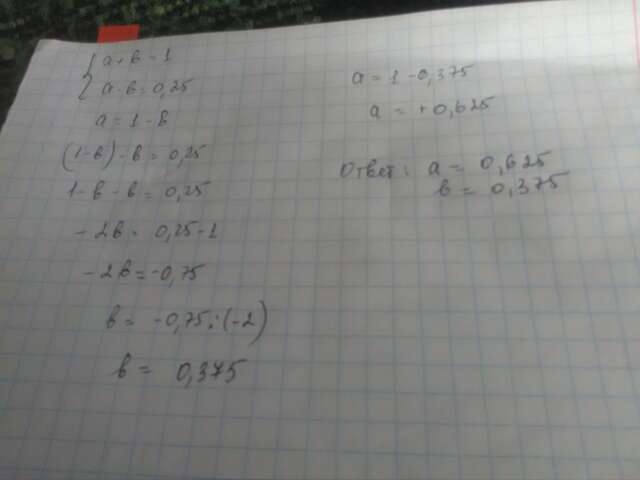 a + b = 1
a - b = 0,25
a = 1 - b
(1-b) - b = 0,25
1 - b - b = 0,25
- 2b = 0,25 - 1
- 2b = -0,75
b = -0,75 : (-2)
b = 0,375
a = 1 - 0,375
a = +0,625
Ответ: a = 0,625
b = 0,375